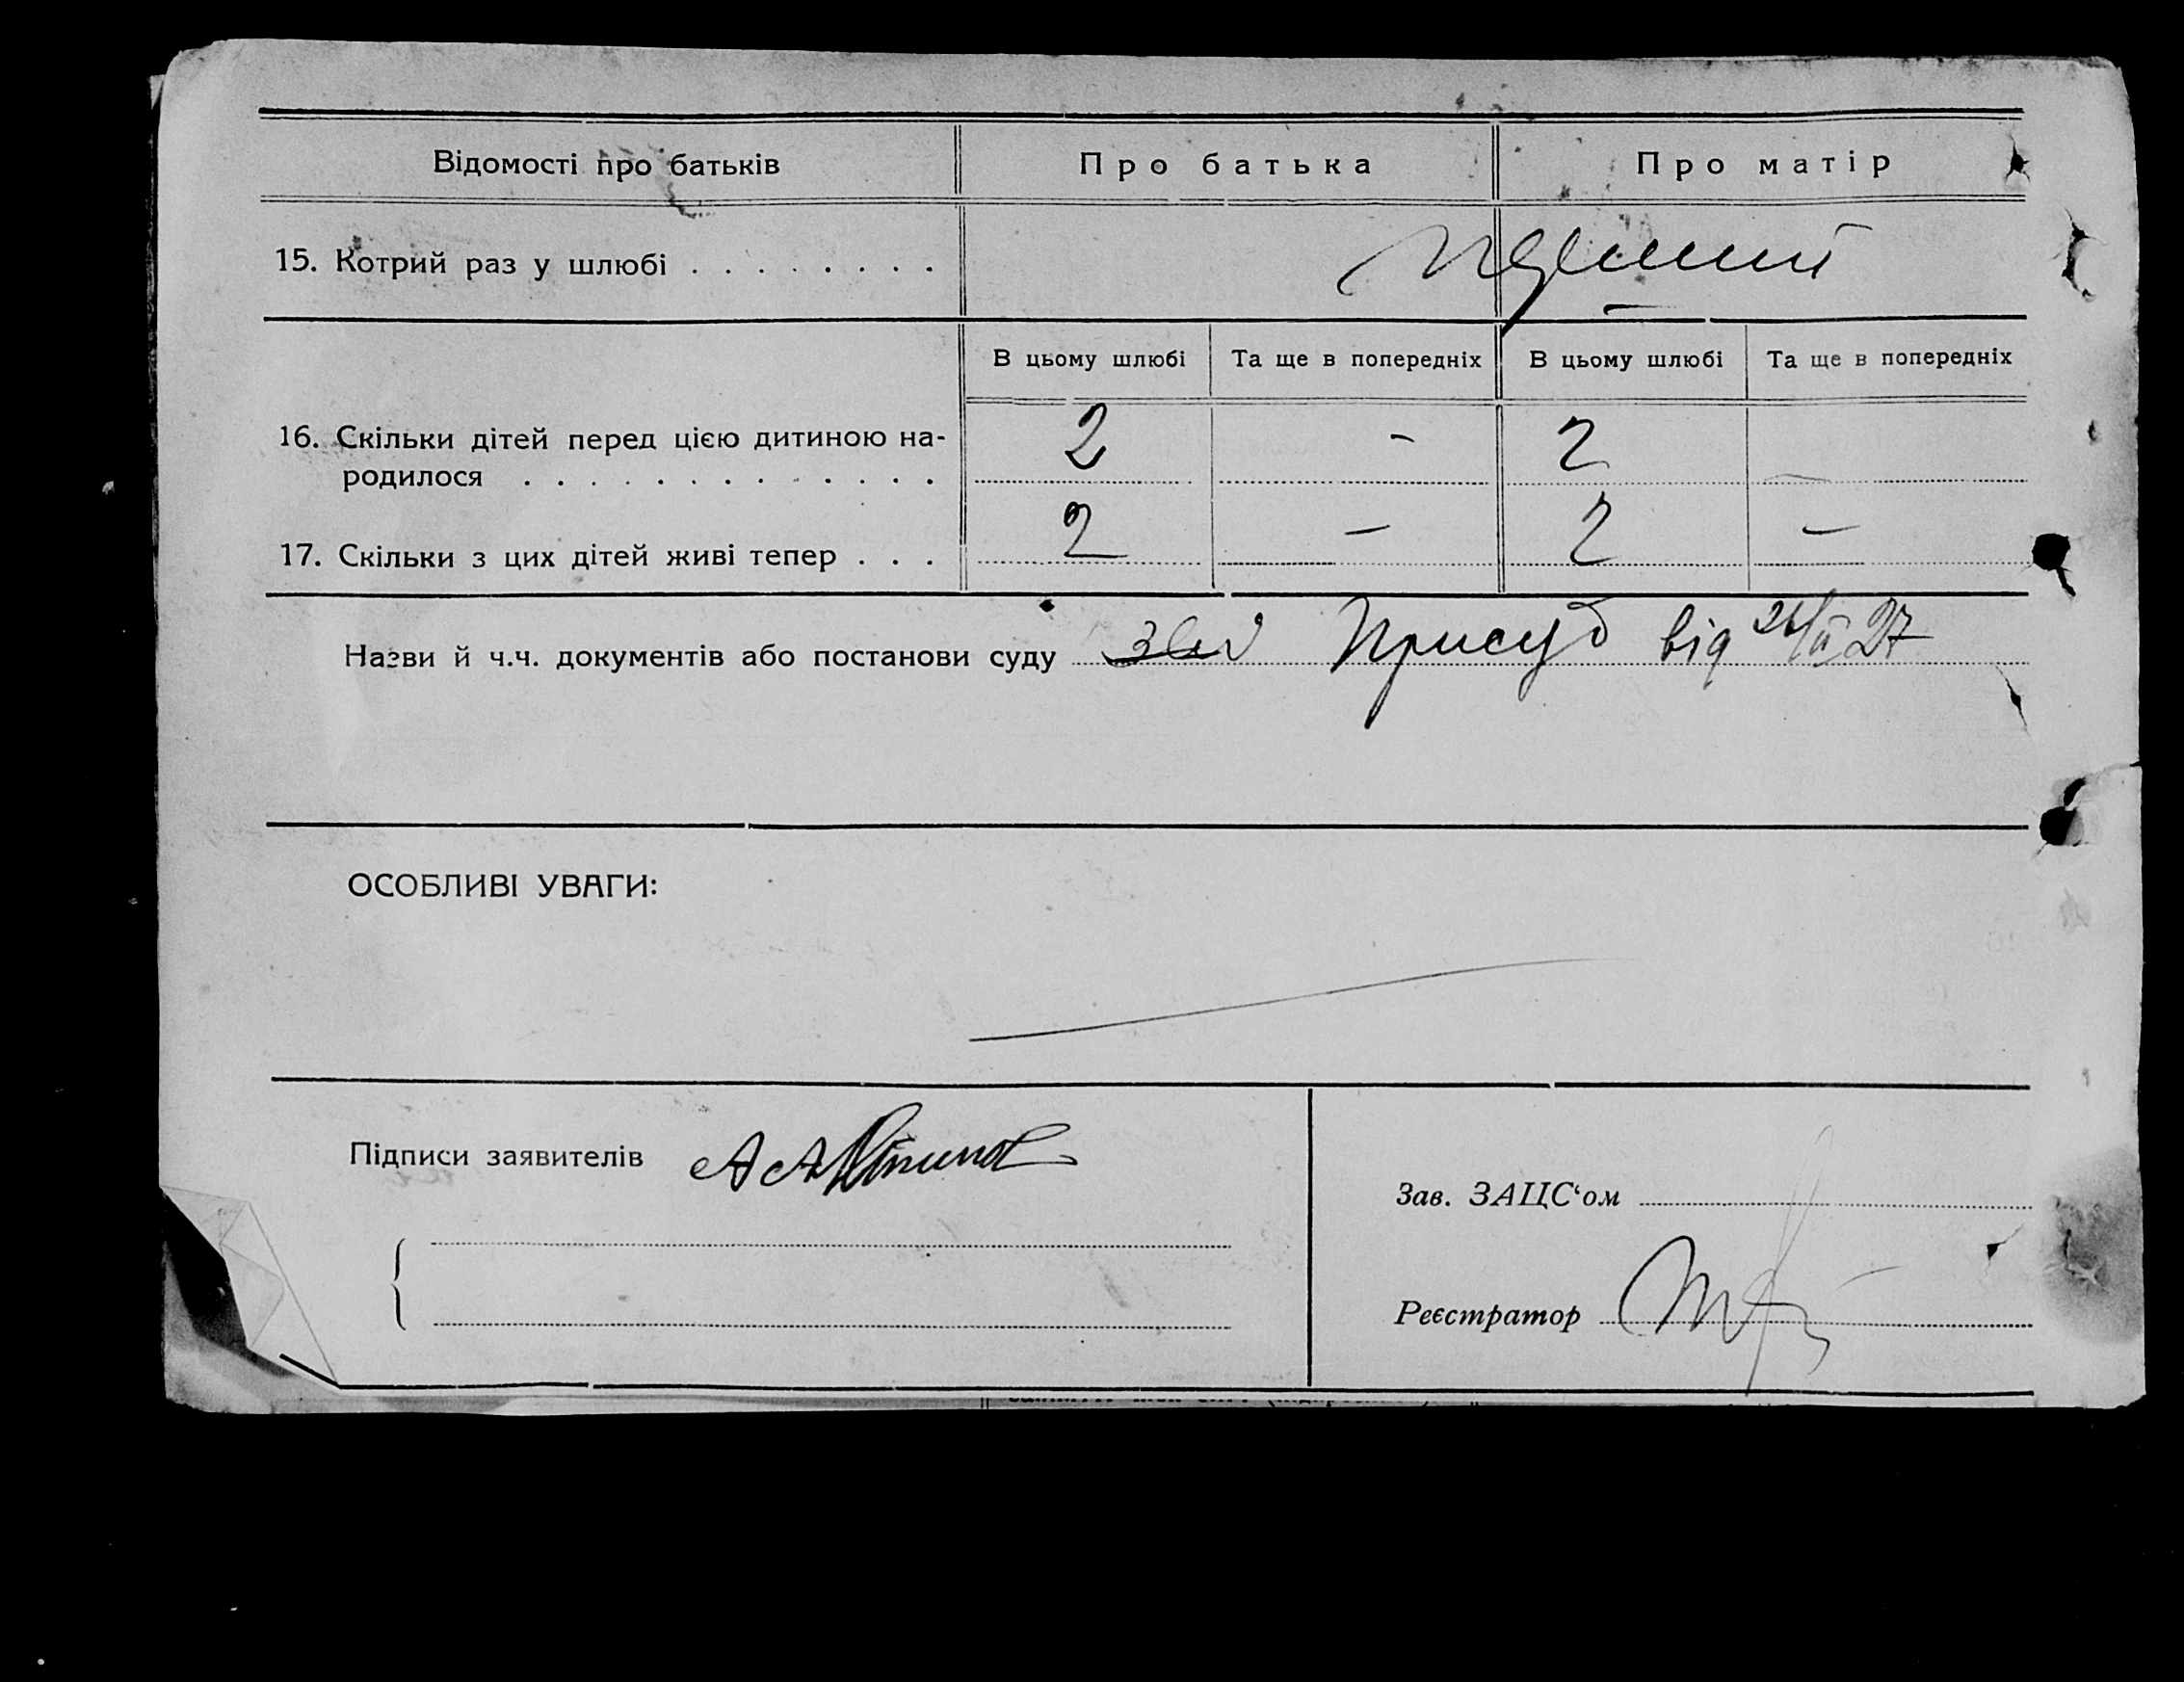 Відомості про батьків Про батька Про матір
15. Котрий раз у шлюбі . . . . . . . . перший
В цьому шлюбі Та ще в попередніх В цьому шлюбі Та ще в попередніх
16. Скільки дітей перед цією дитиною на-
родилося . . . . . . . . . . . . . 2 - 2 —
17. Скільки з цих дітей живі тепер . . . 2 — 2 —
Назви й ч.ч. документів або постанови суду Присуд від /II 27
ОСОБЛИВІ УВАГИ:
Підписи заявителів
Зав. ЗАЦС‘ом
Реєстратор